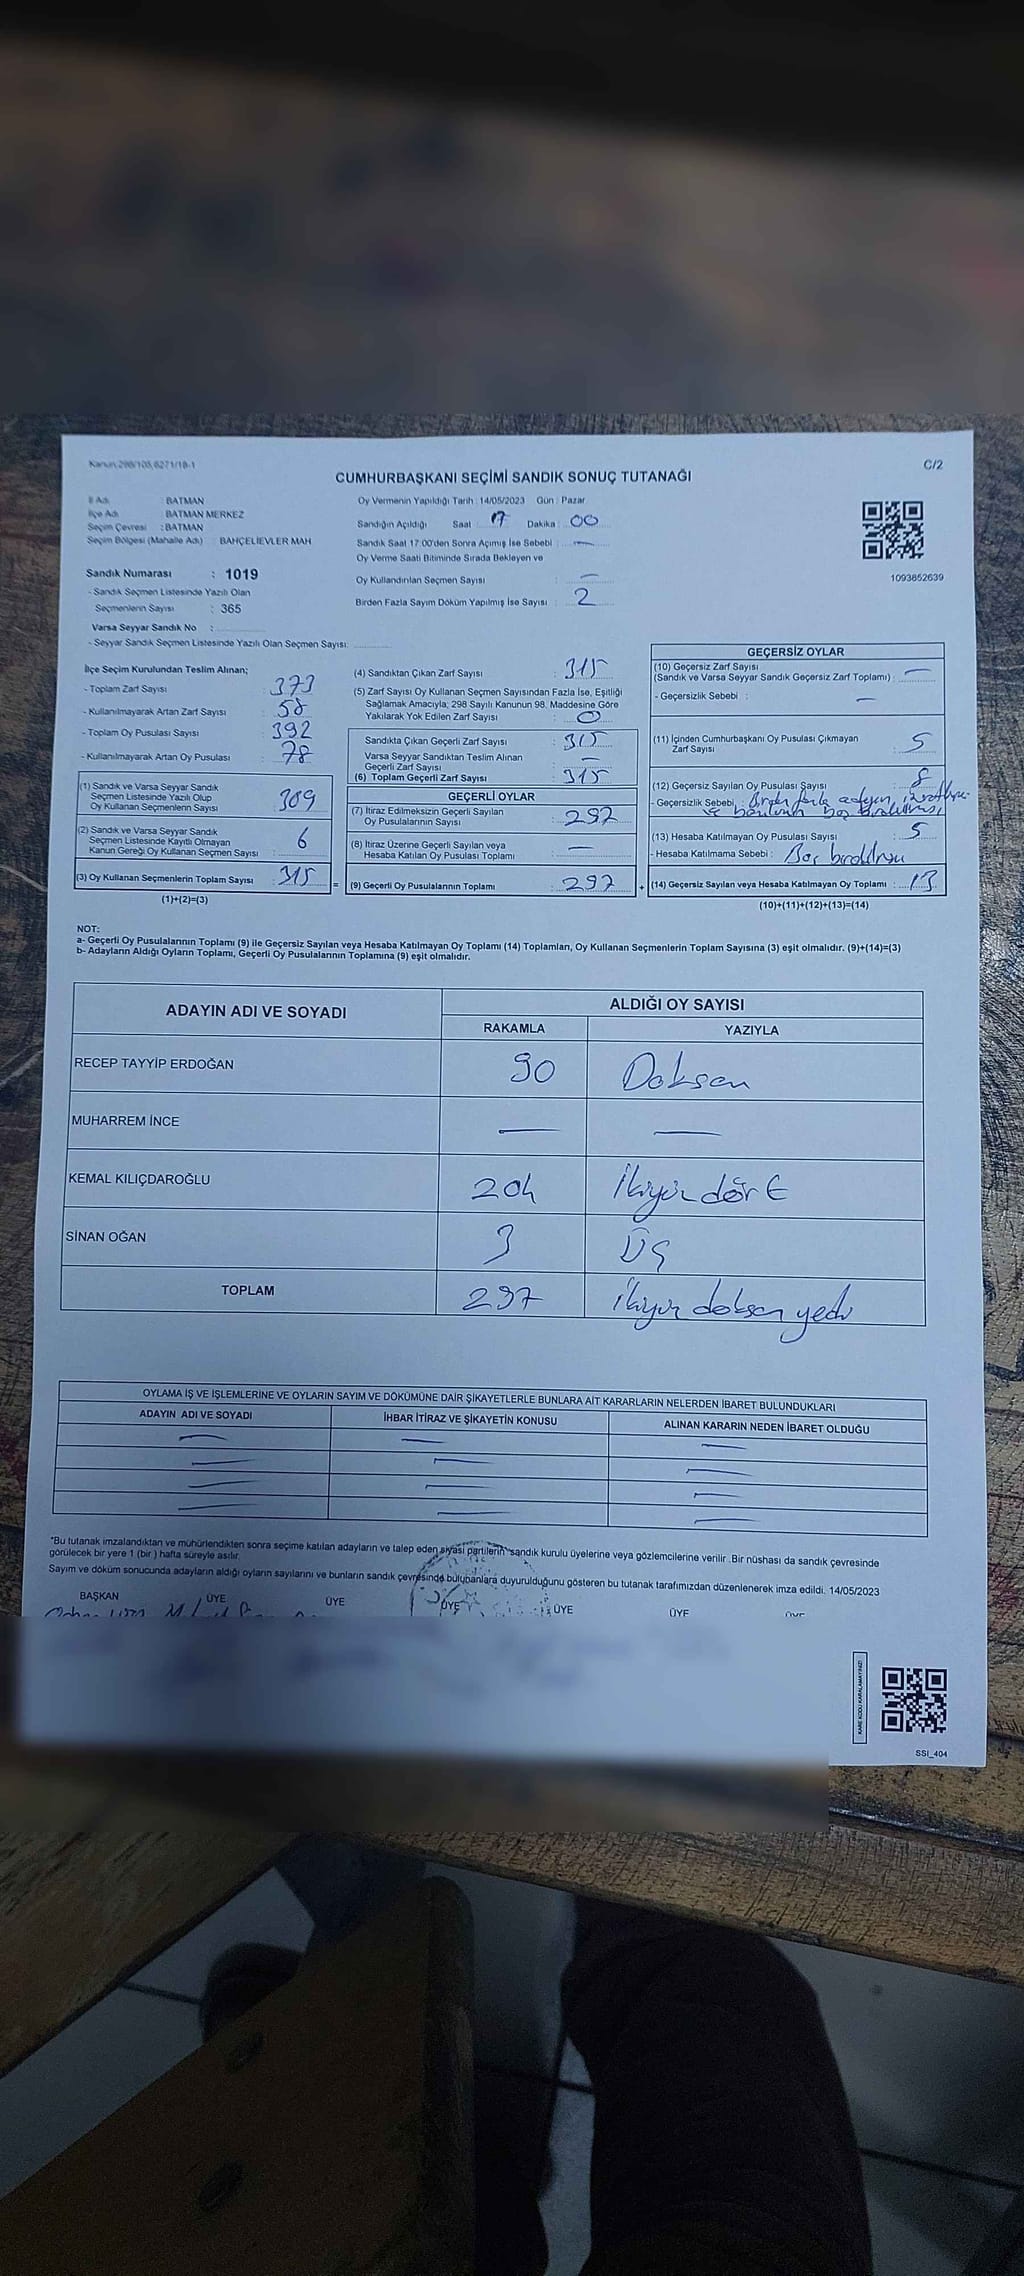 Kanun:298/105,6271/18-1
C/2
CUMHURBAŞKANI SEÇİMİ SANDIK SONUÇ TUTANAĞI
İl Adı : BATMAN
İlçe Adı : BATMAN MERKEZ
Seçim Çevresi : BATMAN
Seçim Bölgesi (Mahalle Adı) : BAHÇELİEVLER MAH
Sandık Numarası : 1019
- Sandık Seçmen Listesinde Yazılı Olan
Seçmenlerin Sayısı : 365
Varsa Seyyar Sandık No :
- Seyyar Sandık Seçmen Listesinde Yazılı Olan Seçmen Sayısı:
Oy Vermenin Yapıldığı Tarih : 14/05/2023 Gün : Pazar
Sandığın Açıldığı Saat 17 Dakika 00
Sandık Saat 17:00'den Sonra Açımış İse Sebebi : —
Oy Verme Saati Bitiminde Sırada Bekleyen ve
Oy Kullandırılan Seçmen Sayısı : —
Birden Fazla Sayım Döküm Yapılmış İse Sayısı : 2
1093852639
İlçe Seçim Kurulundan Teslim Alınan;
- Toplam Zarf Sayısı : 373
- Kullanılmayarak Artan Zarf Sayısı : 58
- Toplam Oy Pusulası Sayısı : 392
- Kullanılmayarak Artan Oy Pusulası : 78
(1) Sandık ve Varsa Seyyar Sandık
Seçmen Listesinde Yazılı Olup
Oy Kullanan Seçmenlerin Sayısı : 309
(2) Sandık ve Varsa Seyyar Sandık
Seçmen Listesinde Kayıtlı Olmayan
Kanun Gereği Oy Kullanan Seçmen Sayısı : 6
(3) Oy Kullanan Seçmenlerin Toplam Sayısı : 315
(1)+(2)=(3)
(4) Sandıktan Çıkan Zarf Sayısı : 315
(5) Zarf Sayısı Oy Kullanan Seçmen Sayısından Fazla İse, Eşitliği
Sağlamak Amacıyla; 298 Sayılı Kanunun 98. Maddesine Göre
Yakılarak Yok Edilen Zarf Sayısı : 0
Sandıkta Çıkan Geçerli Zarf Sayısı : 315
Varsa Seyyar Sandıktan Teslim Alınan
Geçerli Zarf Sayısı : —
(6) Toplam Geçerli Zarf Sayısı : 315
GEÇERLİ OYLAR
(7) İtiraz Edilmeksizin Geçerli Sayılan
Oy Pusulalarının Sayısı : 297
(8) İtiraz Üzerine Geçerli Sayılan veya
Hesaba Katılan Oy Pusulası Toplamı : —
= (9) Geçerli Oy Pusulalarının Toplamı : 297 +
GEÇERSİZ OYLAR
(10) Geçersiz Zarf Sayısı
(Sandık ve Varsa Seyyar Sandık Geçersiz Zarf Toplamı) : —
- Geçersizlik Sebebi : —
(11) İçinden Cumhurbaşkanı Oy Pusulası Çıkmayan
Zarf Sayısı : 5
(12) Geçersiz Sayılan Oy Pusulası Sayısı : 8
- Geçersizlik Sebebi : Birden fazla adayın
ve boş
(13) Hesaba Katılmayan Oy Pusulası Sayısı : 5
- Hesaba Katılmama Sebebi : Boş
(14) Geçersiz Sayılan veya Hesaba Katılmayan Oy Toplamı : 13
(10)+(11)+(12)+(13)=(14)
NOT:
a- Geçerli Oy Pusulalarının Toplamı (9) ile Geçersiz Sayılan veya Hesaba Katılmayan Oy Toplamı (14) Toplamları, Oy Kullanan Seçmenlerin Toplam Sayısına (3) eşit olmalıdır. (9)+(14)=(3)
b- Adayların Aldığı Oyların Toplamı, Geçerli Oy Pusulalarının Toplamına (9) eşit olmalıdır.
ADAYIN ADI VE SOYADI
ALDIĞI OY SAYISI
RAKAMLA YAZIYLA
RECEP TAYYİP ERDOĞAN 90 Doksan
MUHARREM İNCE — —
KEMAL KILIÇDAROĞLU 204 İkiyüz dört
SİNAN OĞAN 3 Üç
TOPLAM 297 İkiyüz doksan yedi
OYLAMA İŞ VE İŞLEMLERİNE VE OYLARIN SAYIM VE DÖKÜMÜNE DAİR ŞİKAYETLERLE BUNLARA AİT KARARLARIN NELERDEN İBARET BULUNDUKLARI
ADAYIN ADI VE SOYADI İHBAR İTİRAZ VE ŞİKAYETİN KONUSU ALINAN KARARIN NEDEN İBARET OLDUĞU
— — —
— — —
— — —
— — —
*Bu tutanak imzalandıktan ve mühürlendikten sonra seçime katılan adayların ve talep eden siyasi partilerin sandık kurulu üyelerine veya gözlemcilerine verilir. Bir nüshası da sandık çevresinde
görülecek bir yere 1 (bir) hafta süreyle asılır.
Sayım ve döküm sonucunda adayların aldığı oyların sayılarını ve bunların sandık çevresinde bulunanlara duyurulduğunu gösteren bu tutanak tarafımızdan düzenlenerek imza edildi. 14/05/2023
BAŞKAN ÜYE ÜYE ÜYE ÜYE ÜYE ÜYE
KARE KODU KARALAMAYINIZ!
SSI_404